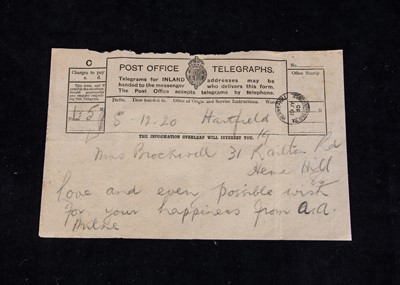 C
Charges to pay
s. d.
POST OFFICE TELEGRAPHS.
Telegrams for INLAND addresses may be
handed to the messenger who delivers this form.
The Post Office accepts telegrams by telephone.
No.
Office Stamp
Prefix. Time handed in. Office of Origin and Service Instructions. Words.
S 12.20 Hartfield 19
THE INFORMATION OVERLEAF WILL INTEREST YOU.
Mrs Brockwell 31 Railton Rd
Herne Hill
love and even possible wish
for your happiness from a.a.
Milne